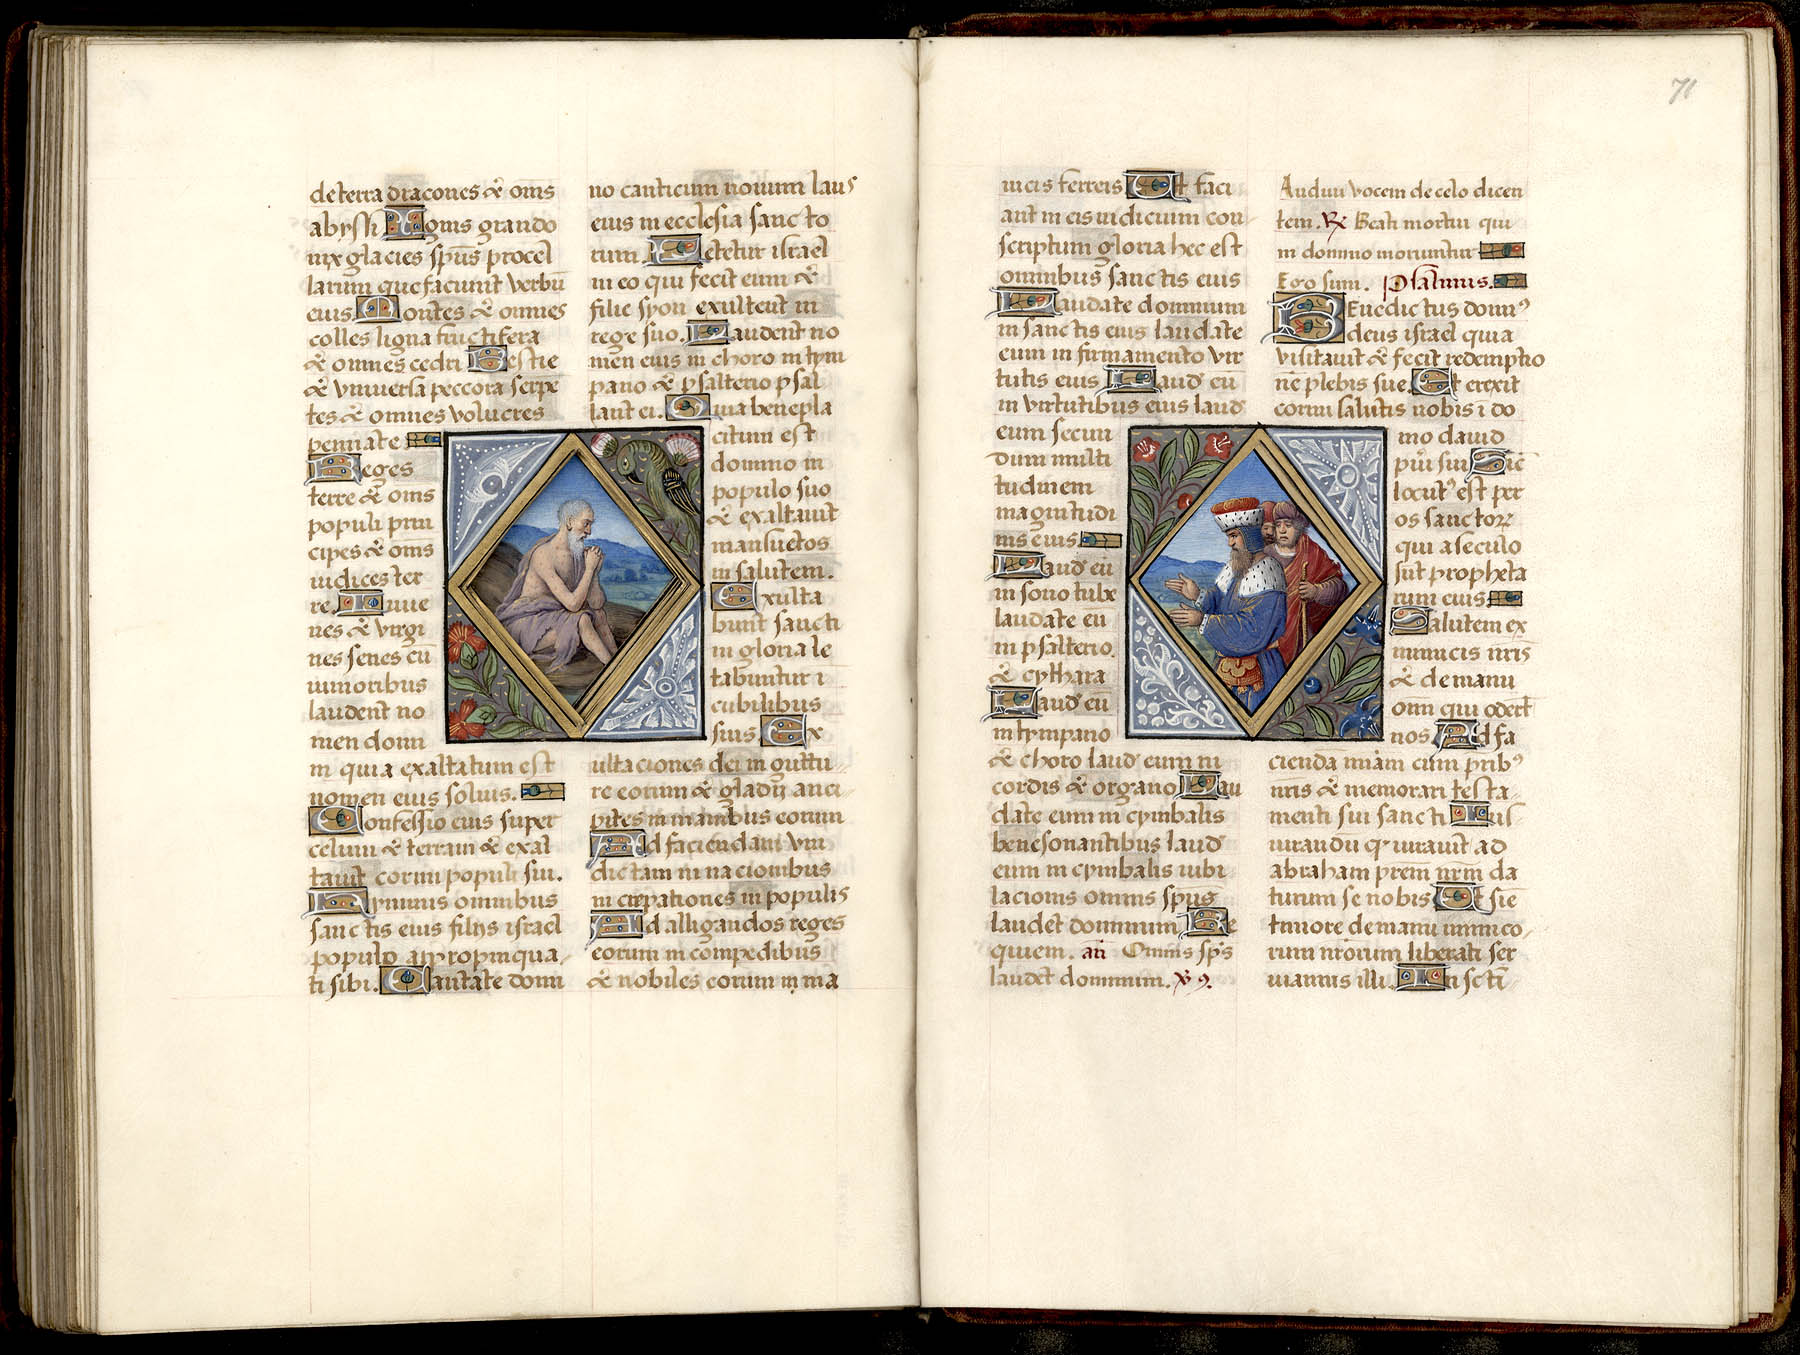 de terra dracones & om̄s
abyssi Ignis grando
nix glacies sp̄us procel
larum que faciunt verbū
eius. Montes & omnes
colles ligna fructifera
& omnes cedri Bestie
& vniversa peccora serpe
tes & omnes volucres
pennate
Reges
terre & om̄s
populi prin
cipes & om̄s
iudices ter
re. Iuue
nes & virgi
nes senes cū
iunioribus
laudent no
men domi
ni quia exaltatum est
nomen eius solius.
Confessio eius super
celum & terram & exal
tauit cornu populi sui.
Hymnus omnibus
sanctis eius filijs israel
populo appropinqua,
ti sibi. Cantate domi
no canticum nouum laus
eius in ecclesia sancto
rum. Letetur israel
in eo qui fecit eum &
filie syon exultent in
rege suo. Laudent no
men eius in choro in tym
pano & psalterio psal
lant ei. Quia benepla
citum est
domino in
populo suo
& exaltauit
mansuetos
in salutem.
Exulta
bunt sancti
in gloria le
tabuntur i
cubilibus
suis Ex
ultaciones dei in guttu
re eorum & gladij anci
pites in manibus eorum
Ad faciendam vin
dictam in nacionibus
increpationes in populis
Ad alligandos reges
eorum in compedibus
& nobiles eorum in ma
nicis ferreis Vt faci
ant in eis iudicium con
scriptum gloria hec est
omnibus sanctis eius
Laudate dominum
in sanctis eius laudate
eum in firmamento vir
tutis eius Laud eū
in virtutibus eius laud
eum secun
dum multi
tudinem
magnitudi
nis eius
Laud eū
in sono tube
laudate eū
in psalterio.
& cythara
Laud eū
in tympano
& choro laud eum in
cordis & organo Lau
date eum in cymbalis
benesonantibus laud
eum in cymbalis iubi
lacionis omnis sp̄us
laudet dominum Re
quiem. an̄ Omnis sp̄s
laudet dominum.
71
Audiui vocem de celo dicen
tem. ℞ Beati mortui qui
in domino moriuntur
Ego sum. psalmus.
BEnedictus domꝰ
deus israel quia
visitauit & fecit redemptio
nē plebis sue. Et erexit
cornu salutis nobis i do
mo dauid
pūi sui Sic̄
locutꝰ est per
os sanctoꝝ
qui a seculo
sūt propheta
rum eius
Salutem ex
inimicis nr̄is
& de manu
om̄i qui oder̄t
nos Ad fa
cienda mīam cum pr̄ibꝰ
nr̄is & memorari testa-
menti sui sancti Ius
iurandū qͥ iurauit ad
abraham prēm nr̄m da
turum se nobis Vt siē
timore de manu inimico,
rum nr̄orum liberati ser
uiamus illi. In scti